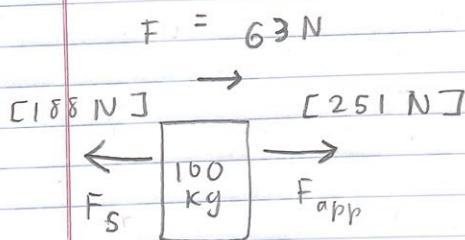 F = 63 N
[188 N] [251 N]
100
kg
F_s F_app